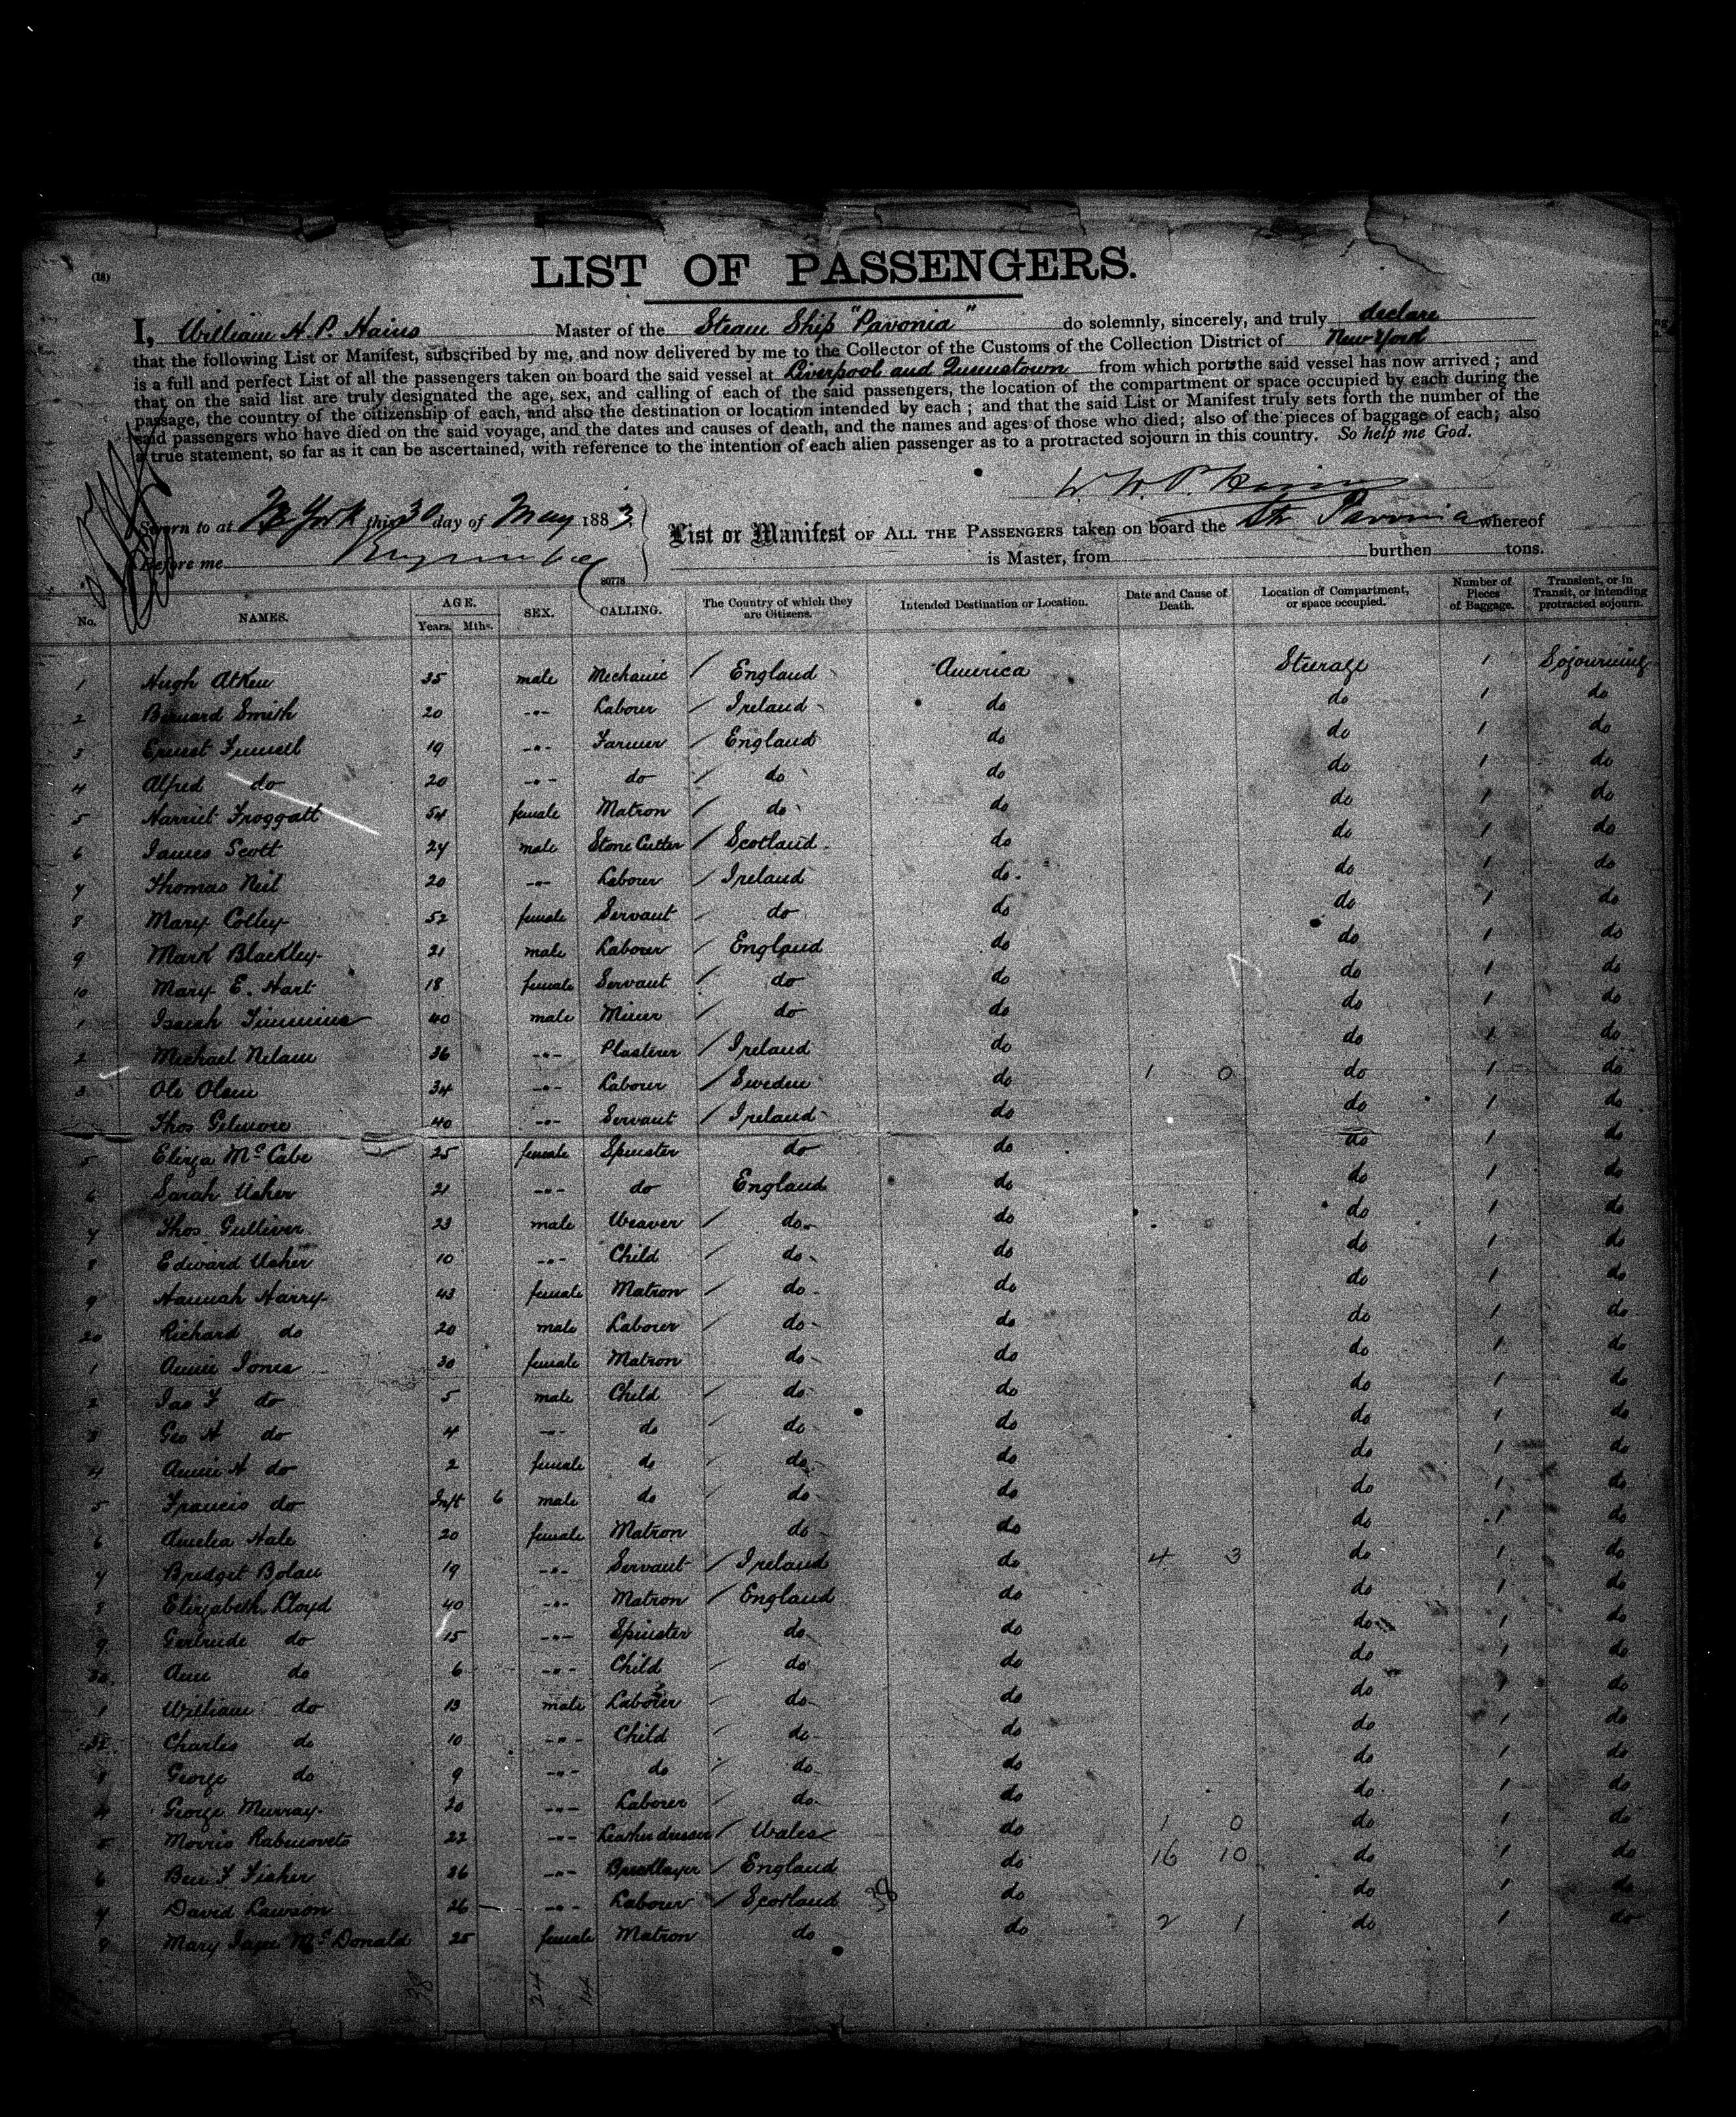 (18)
LIST OF PASSENGERS.
I, William H. P. Hains Master of the Steam Ship "Pavonia" do solemnly, sincerely, and truly declare
that the following List or Manifest, subscribed by me, and now delivered by me to the Collector of the Customs of the Collection District of New York
is a full and perfect List of all the passengers taken on board the said vessel at Liverpool and Queenstown from which ports the said vessel has now arrived; and
that on the said list are truly designated the age, sex, and calling of each of the said passengers, the location of the compartment or space occupied by each during the
passage, the country of the citizenship of each, and also the destination or location intended by each; and that the said List or Manifest truly sets forth the number of the
said passengers who have died on the said voyage, and the dates and causes of death, and the names and ages of those who died; also of the pieces of baggage of each; also
a true statement, so far as it can be ascertained, with reference to the intention of each alien passenger as to a protracted sojourn in this country. So help me God.
W. H. P. Hains
Sworn to at N York this 30 day of May 1883
List or Manifest OF ALL THE PASSENGERS taken on board the Str Pavonia whereof
Before me
is Master, from burthen tons.
80778
No. NAMES. AGE. Years. Mths. SEX. CALLING. The Country of which they are Citizens. Intended Destination or Location. Date and Cause of Death. Location of Compartment, or space occupied. Number of Pieces of Baggage. Transient, or in Transit, or intending protracted sojourn.
1 Hugh Atken 35 male Mechanic / England America Steerage 1 Sojourning
2 Bernard Smith 20 -"- Laborer / Ireland do do 1 do
3 Ernest 19 -"- Farmer / England do do 1 do
4 Alfred do 20 -"- do / do do do 1 do
5 Harriet Froggatt 54 female Matron / do do do 1 do
6 James Scott 24 male Stone Cutter / Scotland do do 1 do
7 Thomas Neil 20 -"- Laborer / Ireland do do 1 do
8 Mary Colley 52 female Servant / do do do 1 do
9 Mark Blackley 21 male Laborer / England do do 1 do
10 Mary E. Hart 18 female Servant / do do do 1 do
1 Isaiah Timmins 40 male Miner / do do do 1 do
2 Michael Nilam 36 -"- Plasterer / Ireland do do 1 do
3 Ole Olsen 34 -"- Laborer / Sweden do 1 0 do 1 do
Thos Gilmore 40 -"- Servant / Ireland do do 1 do
5 Eliza McCabe 25 female Spinster do do do 1 do
6 Sarah Usher 21 -"- do England do do 1 do
7 Thos Gulliver 23 male Weaver / do do do 1 do
8 Edward Usher 10 -"- Child / do do do 1 do
9 Hannah Harry 43 female Matron / do do do 1 do
20 Richard do 20 male Laborer / do do do 1 do
1 Annie Jones 30 female Matron do do do 1 do
2 Jas F do 5 male Child / do do do 1 do
3 Geo H do 4 -"- do / do do do 1 do
4 Annie H do 2 female do / do do do 1 do
5 Francis do Inft 6 male do / do do do 1 do
6 Amelia Hale 20 female Matron do do do 1 do
7 Bridget Bolan 19 -"- Servant / Ireland do 4 3 do 1 do
8 Elizabeth Lloyd 40 -"- Matron / England do do 1 do
9 Gertrude do 15 -"- Spinster do do do 1 do
30 Ann do 6 -"- Child / do do do 1 do
1 William do 13 male Laborer / do do do 1 do
32 Charles do 10 -"- Child / do do do 1 do
3 George do 9 -"- do / do do do 1 do
4 George Murray 20 -"- Laborer / do do do 1 do
5 Morris Rabinovets 22 -"- Leather dresser / Wales do 1 0 do 1 do
6 Ben F. Fisher 26 -"- Bricklayer / England do 16 10 do 1 do
7 David Lawson 26 -"- Labour / Scotland 38 do do 1 do
9 Mary Jane McDonald 25 female Matron do do 2 1 do 1 do
38 24 14